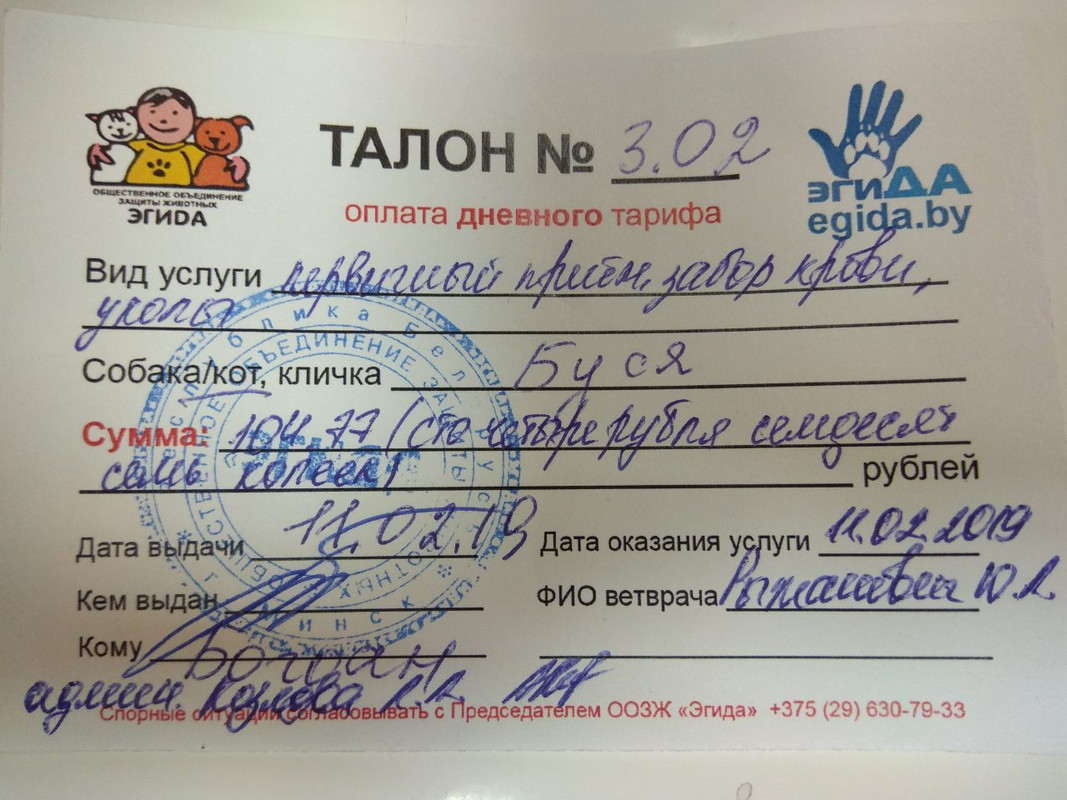 ОБЩЕСТВЕННОЕ ОБЪЕДИНЕНИЕ
ЗАЩИТЫ ЖИВОТНЫХ
ЭГИДА
ТАЛОН № 3.02
оплата дневного тарифа
эгиДА
egida.by
Вид услуги первичный приём, забор крови,
уколы
Собака/кот, кличка Буся
Сумма: 104,77 (сто четыре рубля семдесят
семь копеек)
рублей
Дата выдачи 11.02.19
Дата оказания услуги 11.02.2019
Кем выдан
ФИО ветврача Ю.А.
Кому Богдан
админ. Козлова
Спорные ситуации согласовывать с Председателем ООЗЖ «Эгида» +375 (29) 630-79-33
Республика Беларусь
ОБЩЕСТВЕННОЕ ОБЪЕДИНЕНИЕ ЗАЩИТЫ ЖИВОТНЫХ
г. Минск